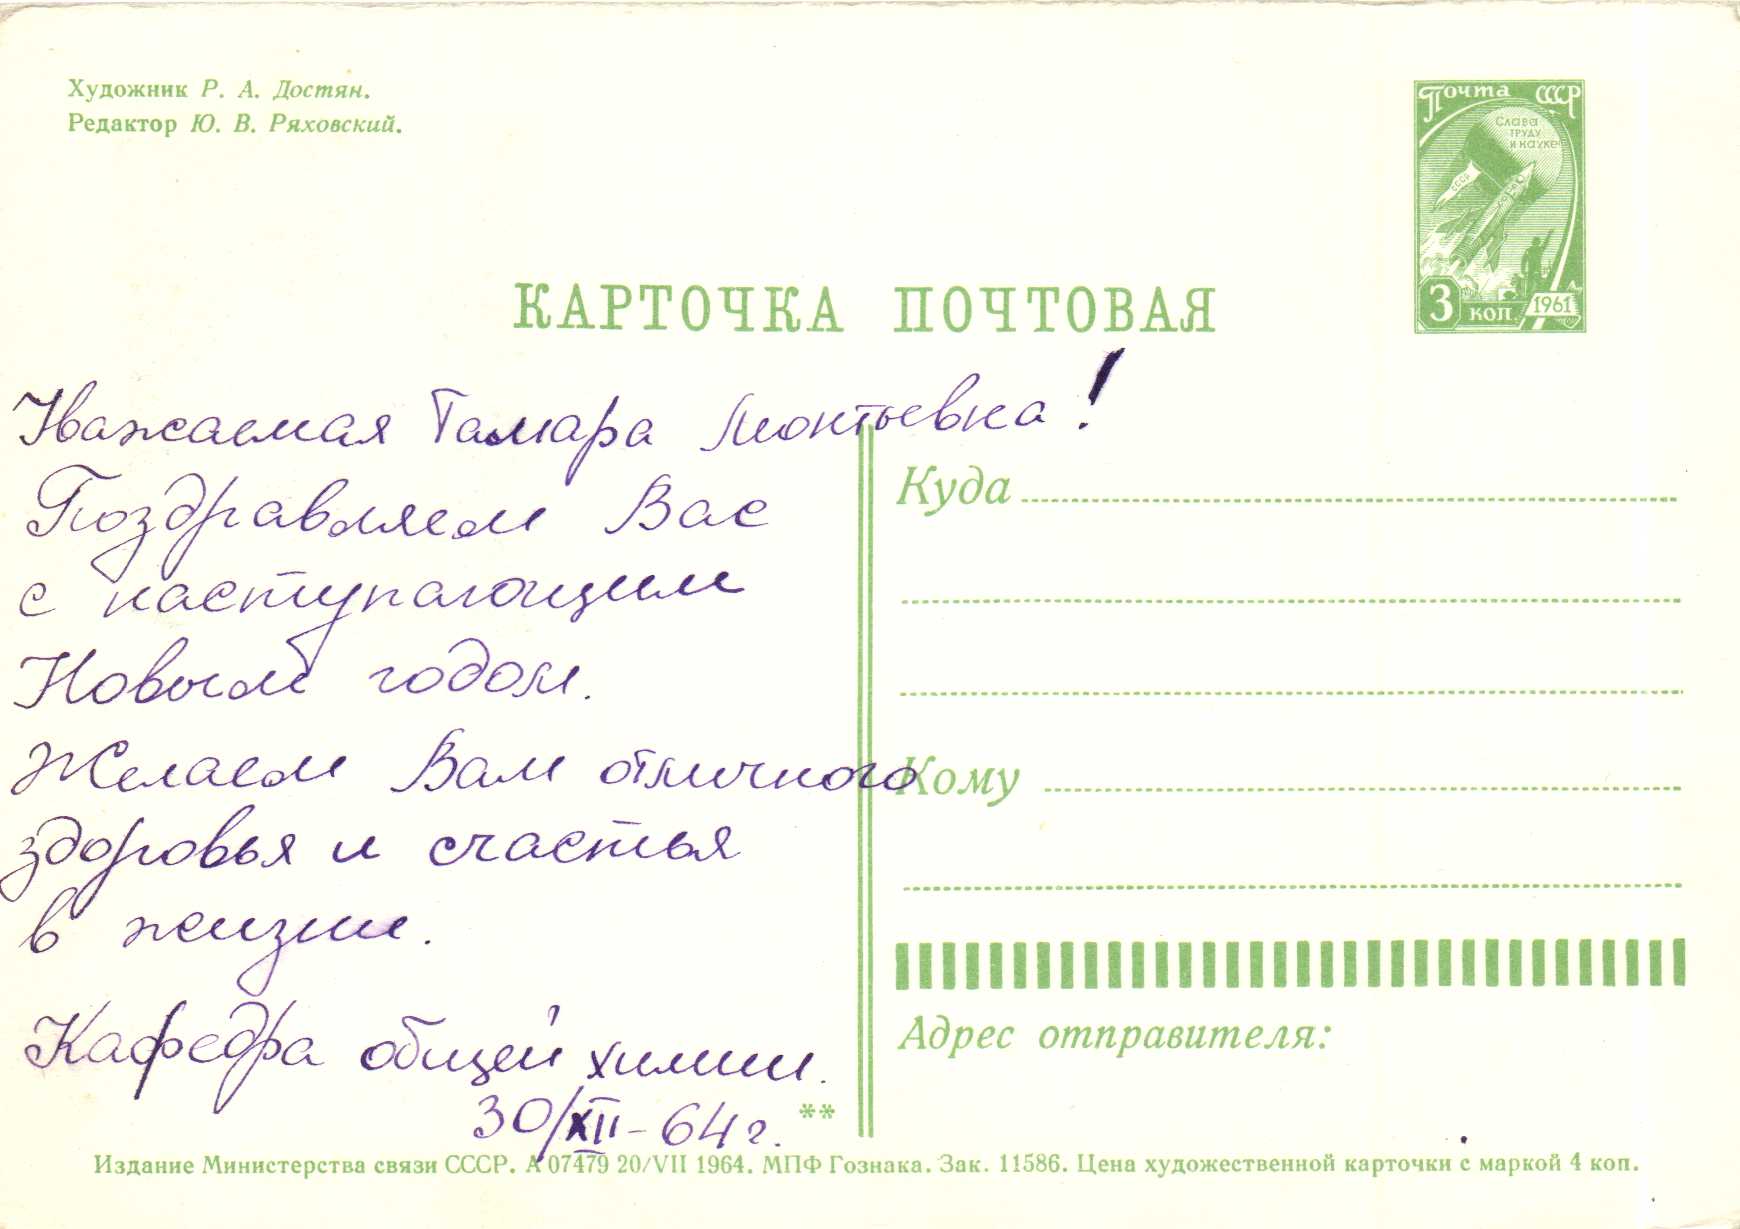 Художник Р. А. Достян.
Редактор Ю. В. Ряховский.
Почта СССР
Слава
труду
и науке
СССР
3 коп. 1961
КАРТОЧКА ПОЧТОВАЯ
Уважаемая Тамара Леонтьевна!
Поздравляем Вас
с наступающим
Новым годом.
Желаем Вам отличного
здоровья и счастья
в жизни.
Кафедра общей химии.
30/XII-64г.
**
Куда
Кому
Адрес отправителя:
Издание Министерства связи СССР. А 07479 20/VII 1964. МПФ Гознака. Зак. 11586. Цена художественной карточки с маркой 4 коп.